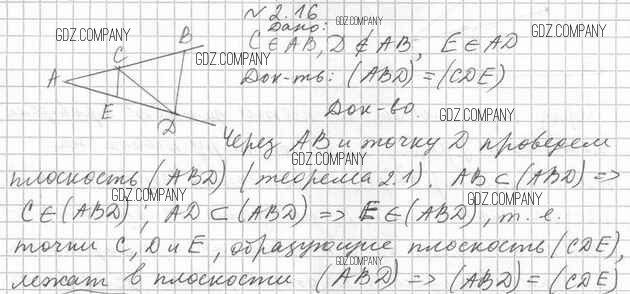 № 2.16
Дано:
C ∈ AB, D ∉ AB, E ∈ AD
Док-ть: (ABD) = (CDE)
Док-во.
Через AB и точку D проведем
плоскость (ABD) (теорема 2.1). AB ⊂ (ABD) =>
C ∈ (ABD); AD ⊂ (ABD) => E ∈ (ABD), т.е.
точки C, D и E, образующие плоскость (CDE),
лежат в плоскости (ABD) => (ABD) = (CDE)
A
C
B
E
D
GDZ.COMPANY
GDZ.COMPANY
GDZ.COMPANY
GDZ.COMPANY
GDZ.COMPANY
GDZ.COMPANY
GDZ.COMPANY
GDZ.COMPANY
GDZ.COMPANY